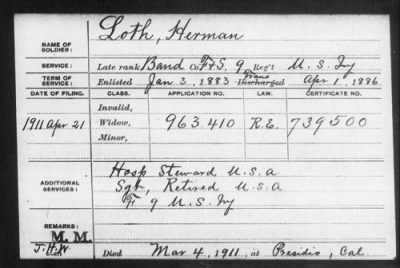 NAME OF SOLDIER: Loth, Herman
SERVICE: Late rank Band Co. F&S, 9 Reg't U. S. Inf
TERM OF SERVICE: Enlisted Jan 3, 1883 Trans Discharged Apr 1, 1886.
DATE OF FILING. CLASS. APPLICATION NO. LAW. CERTIFICATE NO.
Invalid,
1911 Apr 21 Widow, 963410 R.E. 739500
Minor,
ADDITIONAL SERVICES: Hosp Steward U.S.A
Sgt, Retired U.S.A
9 U.S. Inf
REMARKS: M. M.
Died Mar 4, 1911, at Presidio, Cal.